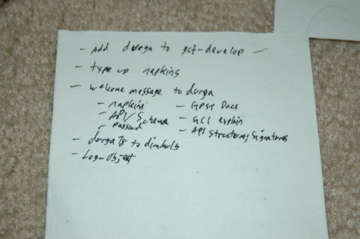 - Add durga to gcf-develop
- type up napkins
- welcome message to durga
- napkins
- API/Schema
- passwd
- Gese Docs
- GCI explain
- API structures, signatures
- durga to
- Log-Object